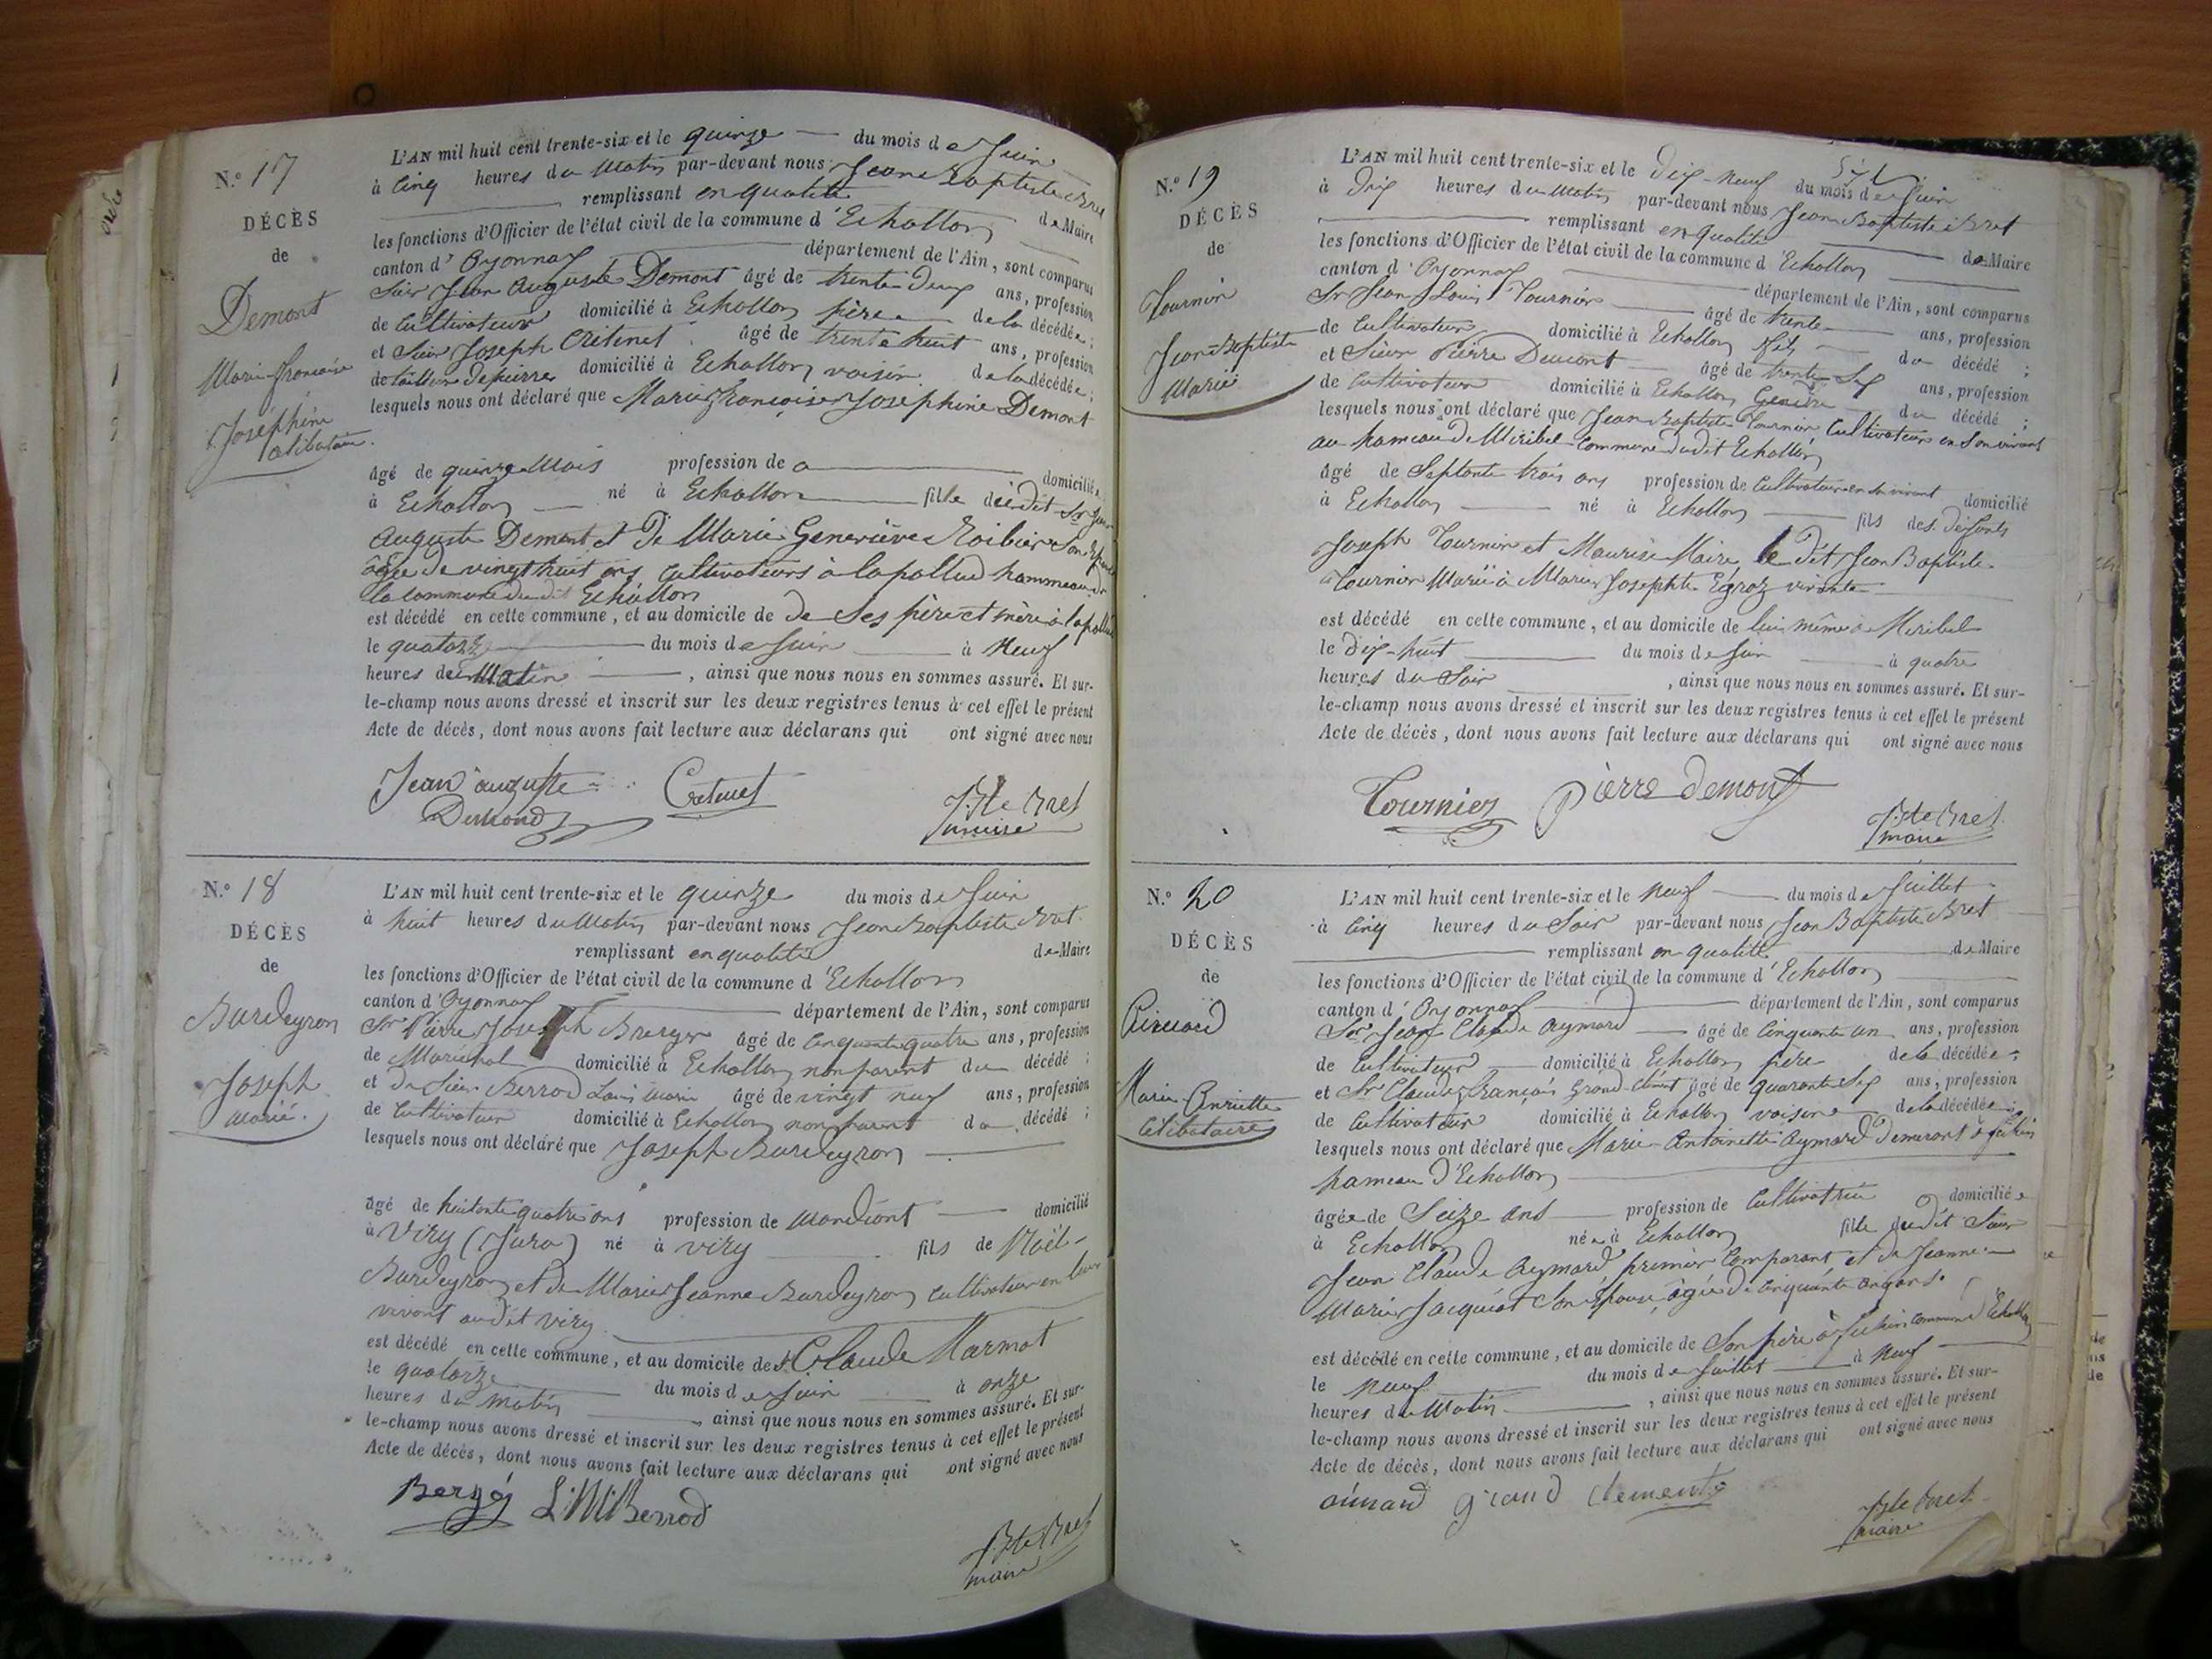 N.° 17
DÉCÈS
de
Demont
Marie françoise
Joséphine
célibataire.
L'AN mil huit cent trente-six et le quinze du mois de Juin
à Cinq heures du Matin par-devant nous Jean Baptiste Bret
remplissant en qualité de Maire
les fonctions d'Officier de l'état civil de la commune d'Echallon
canton d'Oyonnax département de l'Ain, sont comparus
Sieur Jean Auguste Demont âgé de trente deux ans, profession
de Cultivateur domicilié à Echallon père de la décédée;
et Sieur Joseph Crétinet âgé de trente huit ans, profession
de tailleur de pierres domicilié à Echallon voisin de la décédée;
lesquels nous ont déclaré que Marie françoise Joséphine Demont
âgé de quinze Mois profession de domiciliée
à Echallon né à Echallon fille du dit Sr Jean
Auguste Demont et de Marie Geneviève Roibier Son Epouse
âgée de vingt huit ans, Cultivateurs à lapallud hammeau de
la commune du dit Echallon
est décédé en cette commune, et au domicile de de Ses père et mère à lapallud
le quatorze du mois de Juin à Neuf
heures du Matin, ainsi que nous nous en sommes assuré. Et sur-
le-champ nous avons dressé et inscrit sur les deux registres tenus à cet effet le présent
Acte de décès, dont nous avons fait lecture aux déclarans qui ont signé avec nous
Jean auguste Cretinet
Demond
J. Bte Bret
maire
N.° 18
DÉCÈS
de
Burdeyron
Joseph
Marié.
L'AN mil huit cent trente-six et le quinze du mois de Juin
à huit heures du Matin par-devant nous Jean Baptiste Bret
remplissant en qualité de Maire
les fonctions d'Officier de l'état civil de la commune d'Echallon
canton d'Oyonnax département de l'Ain, sont comparus
Sr Pierre Joseph Berger âgé de Cinquante quatre ans, profession
de Maréchal domicilié à Echallon non parent du décédé;
et du Sieur Berrod Louis Marie âgé de vingt neuf ans, profession
de Cultivateur domicilié à Echallon non parent du décédé;
lesquels nous ont déclaré que Joseph Burdeyron
âgé de huitante quatre ans profession de Mandiant domicilié
à Viry (Jura) né à Viry fils de Noël
Burdeyron et de Marie Jeanne Burdeyron Cultivateur en leur
vivant audit Viry
est décédé en cette commune, et au domicile de Sr Claude Marmot
le quatorze du mois de Juin à onze
heures du matin, ainsi que nous nous en sommes assuré. Et sur-
le-champ nous avons dressé et inscrit sur les deux registres tenus à cet effet le présent
Acte de décès, dont nous avons fait lecture aux déclarans qui ont signé avec nous
Bergé L. M. Berrod
J. Bte Bret
maire
N.° 19
DÉCÈS
de
Tournier
Jean-Baptiste
Marié
L'AN mil huit cent trente-six et le Dix-Neuf du mois de Juin
à Dix heures du Matin par-devant nous Jean Baptiste Bret
remplissant en qualité de Maire
les fonctions d'Officier de l'état civil de la commune d'Echallon
canton d'Oyonnax département de l'Ain, sont comparus
Sr Jean Louis Tournier âgé de trente ans, profession
de Cultivateur domicilié à Echallon fils du décédé;
et Sieur Pierre Demont âgé de trente Six ans, profession
de Cultivateur domicilié à Echallon Gendre du décédé;
lesquels nous ont déclaré que Jean Baptiste Tournier Cultivateur en Son vivant
au hameau de Miribel Commune dudit Echallon
âgé de Septante trois ans profession de Cultivateur en Son vivant domicilié
à Echallon né à Echallon fils des Défunts
Joseph Tournier et Maurise Maire, le dit Jean Baptiste
Tournier Marié à Marie Josephte Egroz vivante
est décédé en cette commune, et au domicile de lui même à Miribel
le Dix-huit du mois de Juin à quatre
heures du Soir, ainsi que nous nous en sommes assuré. Et sur-
le-champ nous avons dressé et inscrit sur les deux registres tenus à cet effet le présent
Acte de décès, dont nous avons fait lecture aux déclarans qui ont signé avec nous
Tournier Pierre demont
J. Bte Bret
maire
N.° 20
DÉCÈS
de
Marie
Célibataire
L'AN mil huit cent trente-six et le Neuf du mois de Juillet
à Cinq heures du Soir par-devant nous Jean Baptiste Bret
remplissant en qualité de Maire
les fonctions d'Officier de l'état civil de la commune d'Echallon
canton d'Oyonnax département de l'Ain, sont comparus
Sr Jean Claude Aymard âgé de Cinquante un ans, profession
de Cultivateur domicilié à Echallon père de la décédée;
et Sr Claude françois Grand-clément âgé de quarante Six ans, profession
de Cultivateur domicilié à Echallon voisin de la décédée;
lesquels nous ont déclaré que Marie Antoinette Aymard Demeurant à
hameau d'Echallon
âgée de Seize ans profession de Cultivatrice domiciliée
à Echallon née à Echallon fille du dit Sieur
Jean Claude Aymard premier Comparant et de Jeanne
Marie Jacquiot Son Epouse, âgée de Cinquante
est décédé en cette commune, et au domicile de Son père à commune d'Echallon
le Neuf du mois de Juillet à Neuf
heures du Matin, ainsi que nous nous en sommes assuré. Et sur-
le-champ nous avons dressé et inscrit sur les deux registres tenus à cet effet le présent
Acte de décès, dont nous avons fait lecture aux déclarans qui ont signé avec nous
aimard grand Clement
J. Bte Bret
maire